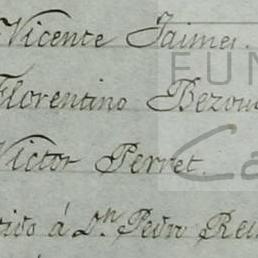 Vicente Jaimes.
Florentino
Victor Perret.
á Dn Pedro
FUN
Ca